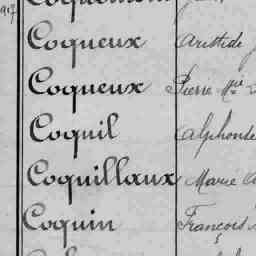 Coqueux Aristide
Coqueux Pierre Mie
Coquil Alphonse
Coquillaux Marie
Coquin François